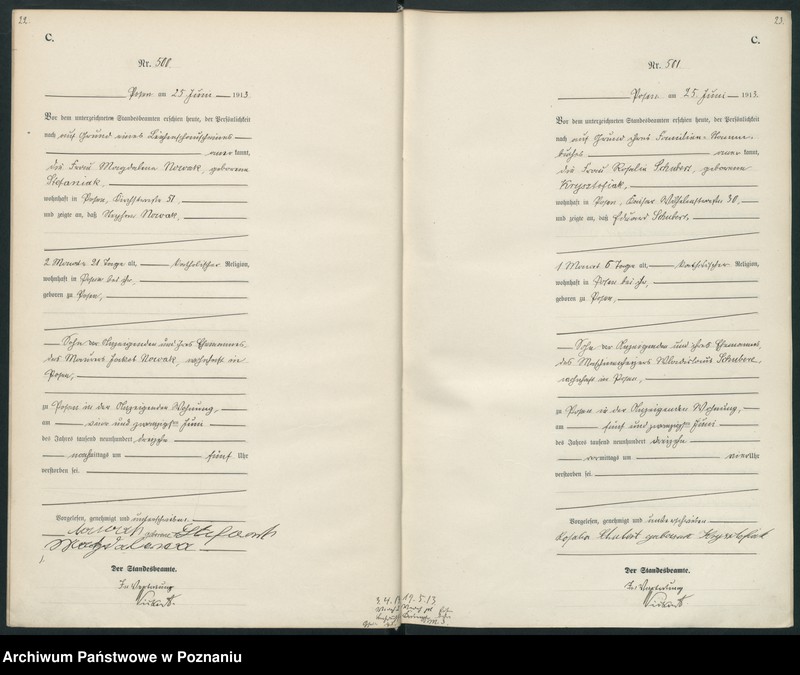 22.
C.
Nr. 500
Posen am 25 Juni 1913.
Vor dem unterzeichneten Standesbeamten erschien heute, der Persönlichkeit
nach auf Grund eines Leichenschauscheines
kannt,
die Frau Magdalena Nowak, geborene
Stefaniak,
wohnhaft in Posen, 51,
und zeigte an, daß Stephan Nowak,
2 Monate 21 Tage alt, katholischer Religion,
wohnhaft in Posen bei ihr,
geboren zu Posen,
Sohn der Anzeigenden und ihres Ehemannes,
des Maurers Jakob Nowak, wohnhaft in
Posen,
zu Posen in der Anzeigenden Wohnung,
am und zwanzigsten Juni
des Jahres tausend neunhundert dreizehn
nachmittags um fünf Uhr
verstorben sei.
Vorgelesen, genehmigt und unterschrieben.
Nowak geborene Stefaniak
Magdalena
Der Standesbeamte.
In Vertretung
23.
C.
Nr. 501
Posen am 25. Juni 1913.
Vor dem unterzeichneten Standesbeamten erschien heute, der Persönlichkeit
nach auf Grund ihres Familien-Stamm-
buches kannt,
die Frau Rosalie Schubert, geborene
Krysztofiak,
wohnhaft in Posen, Kaiser Wilhelmstraße 30,
und zeigte an, daß Eduard Schubert,
1 Monat 6 Tage alt, katholischer Religion,
wohnhaft in Posen bei ihr,
geboren zu Posen,
Sohn der Anzeigenden und ihres Ehemannes,
des Maschinenheizers Schubert,
wohnhaft in Posen,
zu Posen in der Anzeigenden Wohnung,
am fünf und zwanzigsten Juni
des Jahres tausend neunhundert dreizehn
vormittags um vier Uhr
verstorben sei.
Vorgelesen, genehmigt und unterschrieben
Rosalie Schubert geborene Krysztofiak
Der Standesbeamte.
In Vertretung
19.5.13
Archiwum Państwowe w Poznaniu